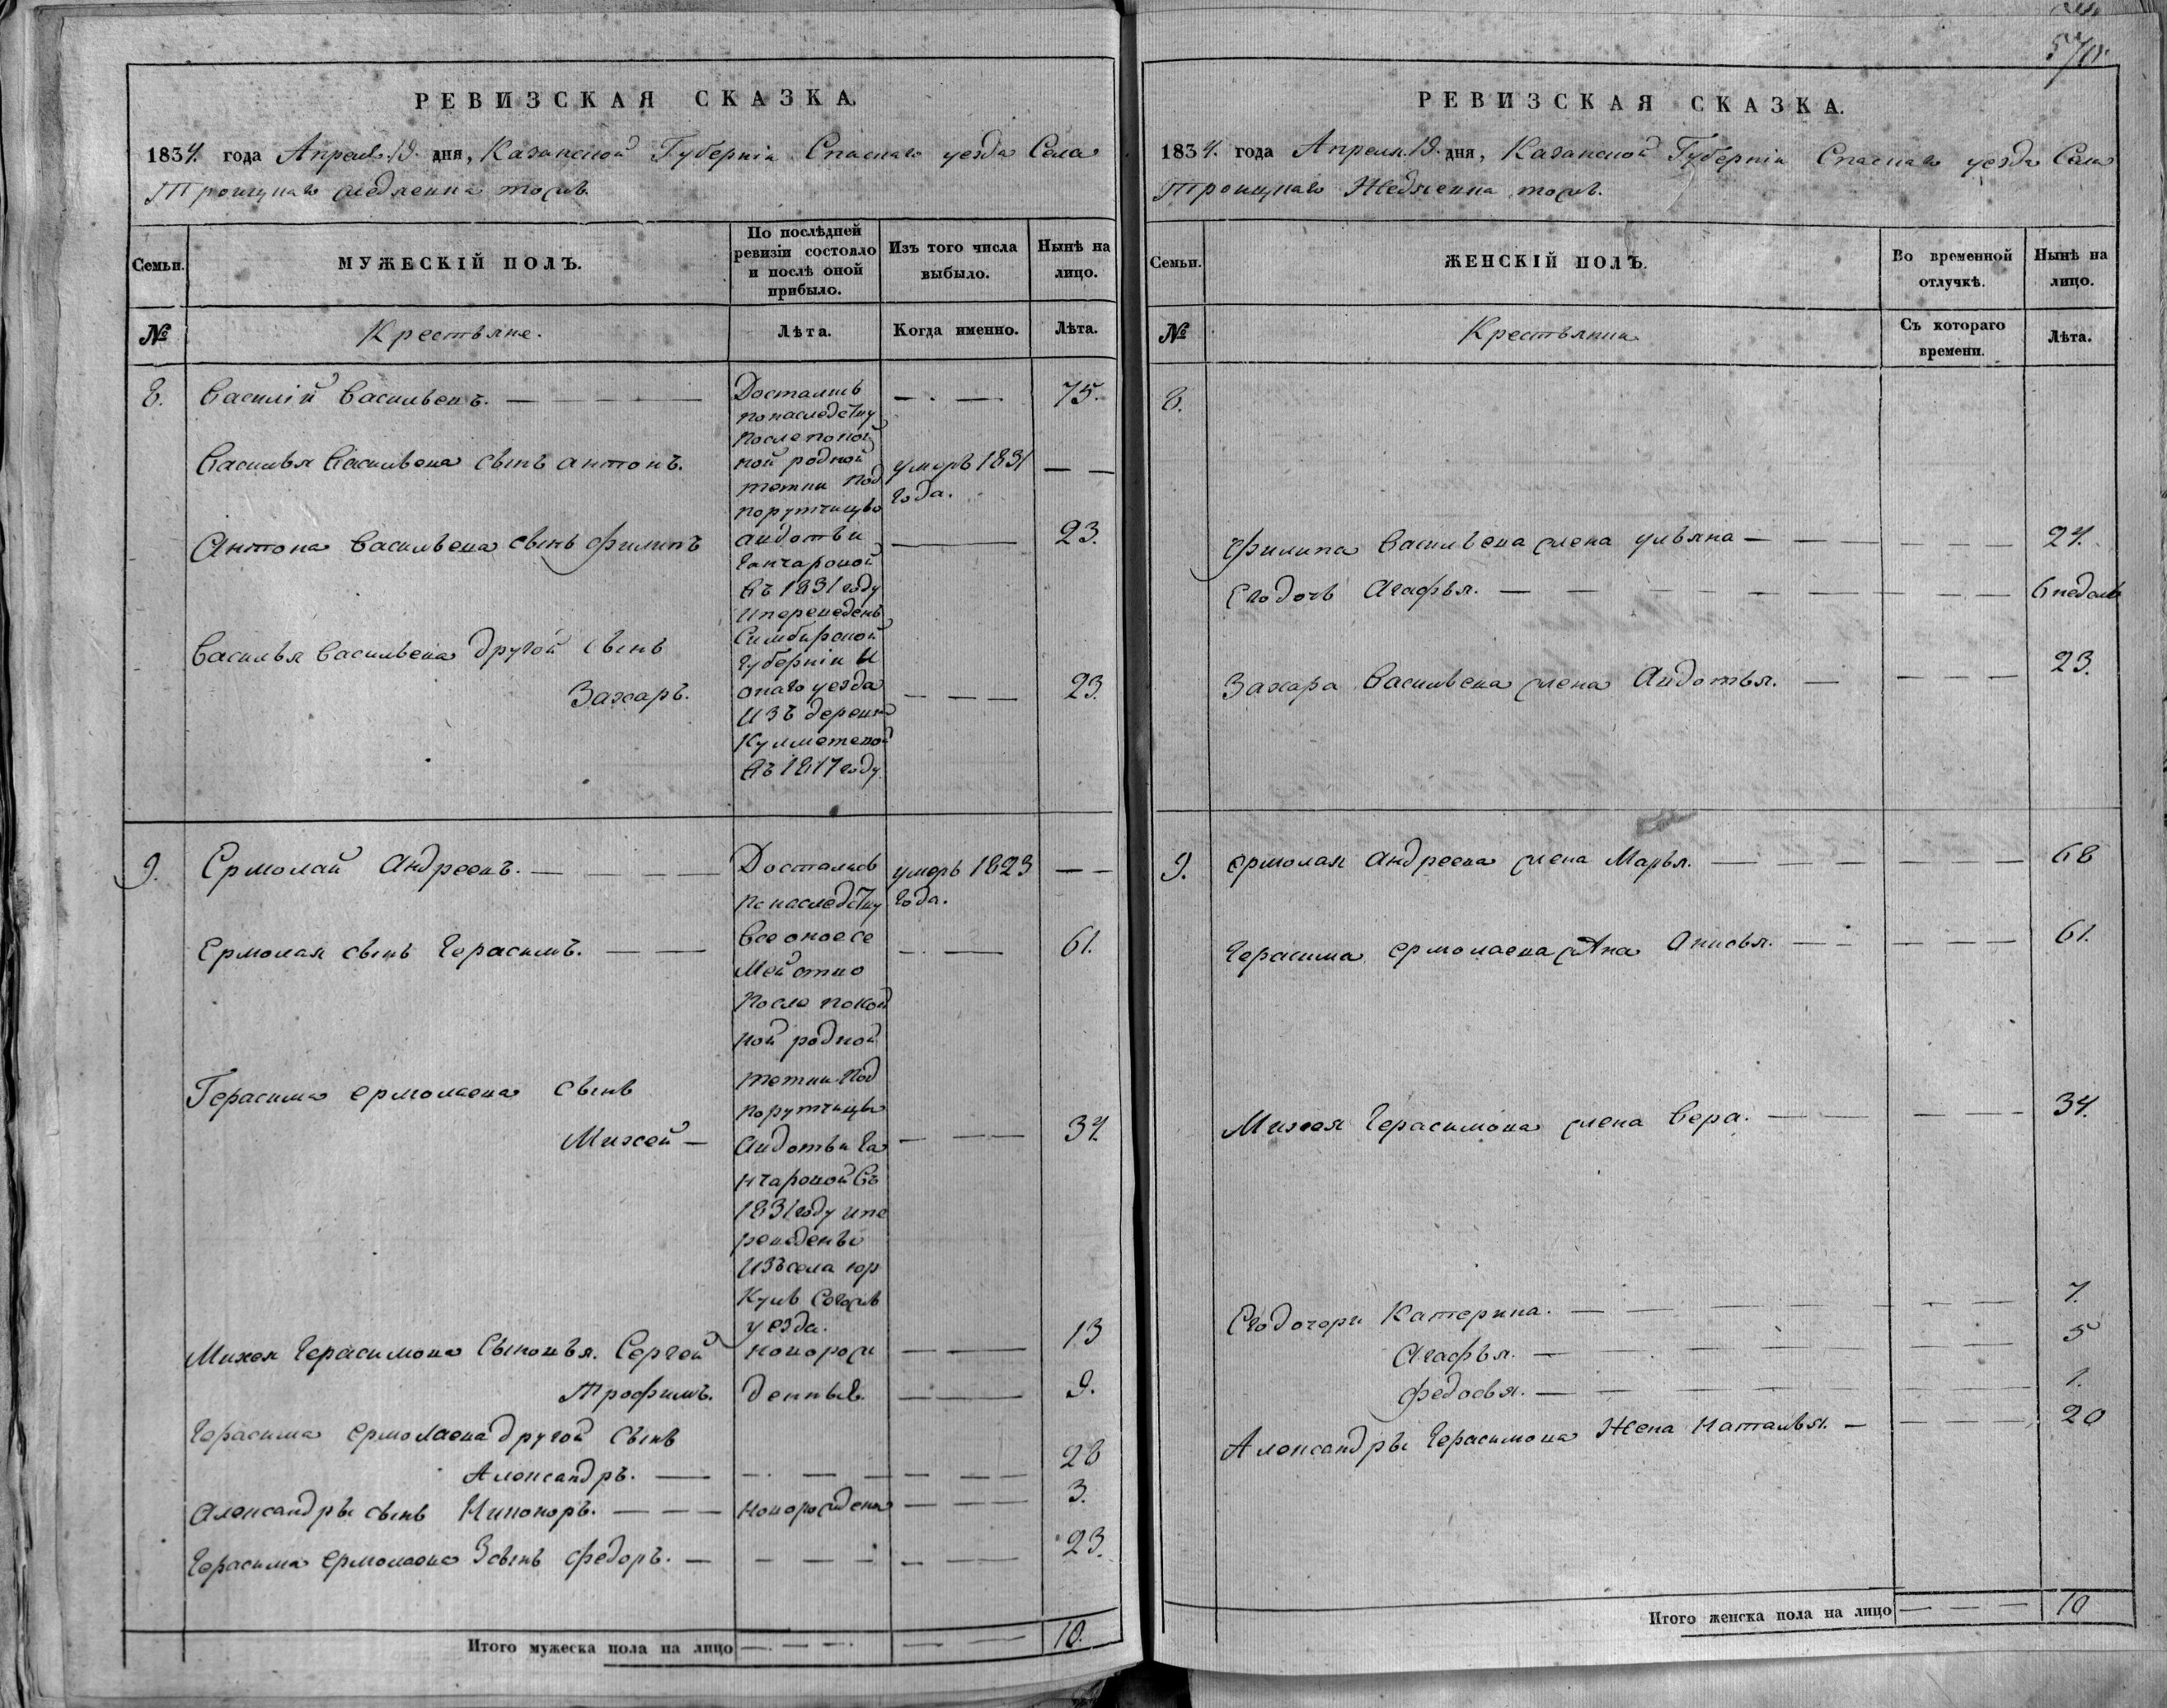 РЕВИЗСКАЯ СКАЗКА.
1834. года Апреля 19. дня, Казанской Губернiи Спаскаго уезда Села
Троицкаго тожъ.
Семьи.
МУЖЕСКIЙ ПОЛЪ.
По послѣдней ревизiи состояло и послѣ оной прибыло.
Изъ того числа выбыло.
Нынѣ на лицо.
№
Крестьяне.
Лѣта.
Когда именно.
Лѣта.
8. Василiй Васильевъ. 75.
Василья Васильева сынъ антонъ. умеръ 1831 года.
Антона Васильева сынъ филипъ 23.
Василья Васильева другой сынъ
Захаръ. 23.
Досталис
понаследству
после покой
ной родной
тетки под
порутчицы
авдотьи
Ганчаровой
въ 1831 году
и переведенъ
Симбирской
губернiи и
онаго уезда
изъ деревни
въ 1817 году
9. Ермолай Андреевъ. умеръ 1823 года.
Ермолая сынъ Герасимъ. 61.
Герасима ермолаева сынъ
Михей 34.
Досталис
по наследству
все оное се
мейство
после покой
ной родной
тетки под
порутчицы
авдотьи Га
нчаровой въ
1831 году и пе
реведены
изъ села юр
куль
уезда.
Михея Герасимова сыновья. Сергей новорож 13
Трофимъ. денные. 9.
Герасима ермолаева другой сынъ
Александръ. 28
Александры сынъ Никоноръ. новорожденъ 3.
Герасима ермолаева 3 сынъ федоръ. 23.
Итого мужеска пола на лицо 10.
РЕВИЗСКАЯ СКАЗКА.
1834. года Апреля 19. дня, Казанской Губернiи Спаскаго уезда Села
Троицкаго тожъ.
Семьи.
ЖЕНСКIЙ ПОЛЪ.
Во временной отлучкѣ.
Нынѣ на лицо.
№
Крестьянки
Съ котораго времени.
Лѣта.
8.
филипа Васильева жена ульяна 24.
Его дочь Агафья. 6 недель
Захара Васильева жена Авдотья. 23.
9. ермолая андреева жена Марья. 68
Герасима ермолаева жена 61.
Михея Герасимова жена Вера. 34.
Его дочери Катерина. 7.
Агафья. 5
федосья. 1.
Александры Герасимова жена Наталья. 20
Итого женска пола на лицо 10